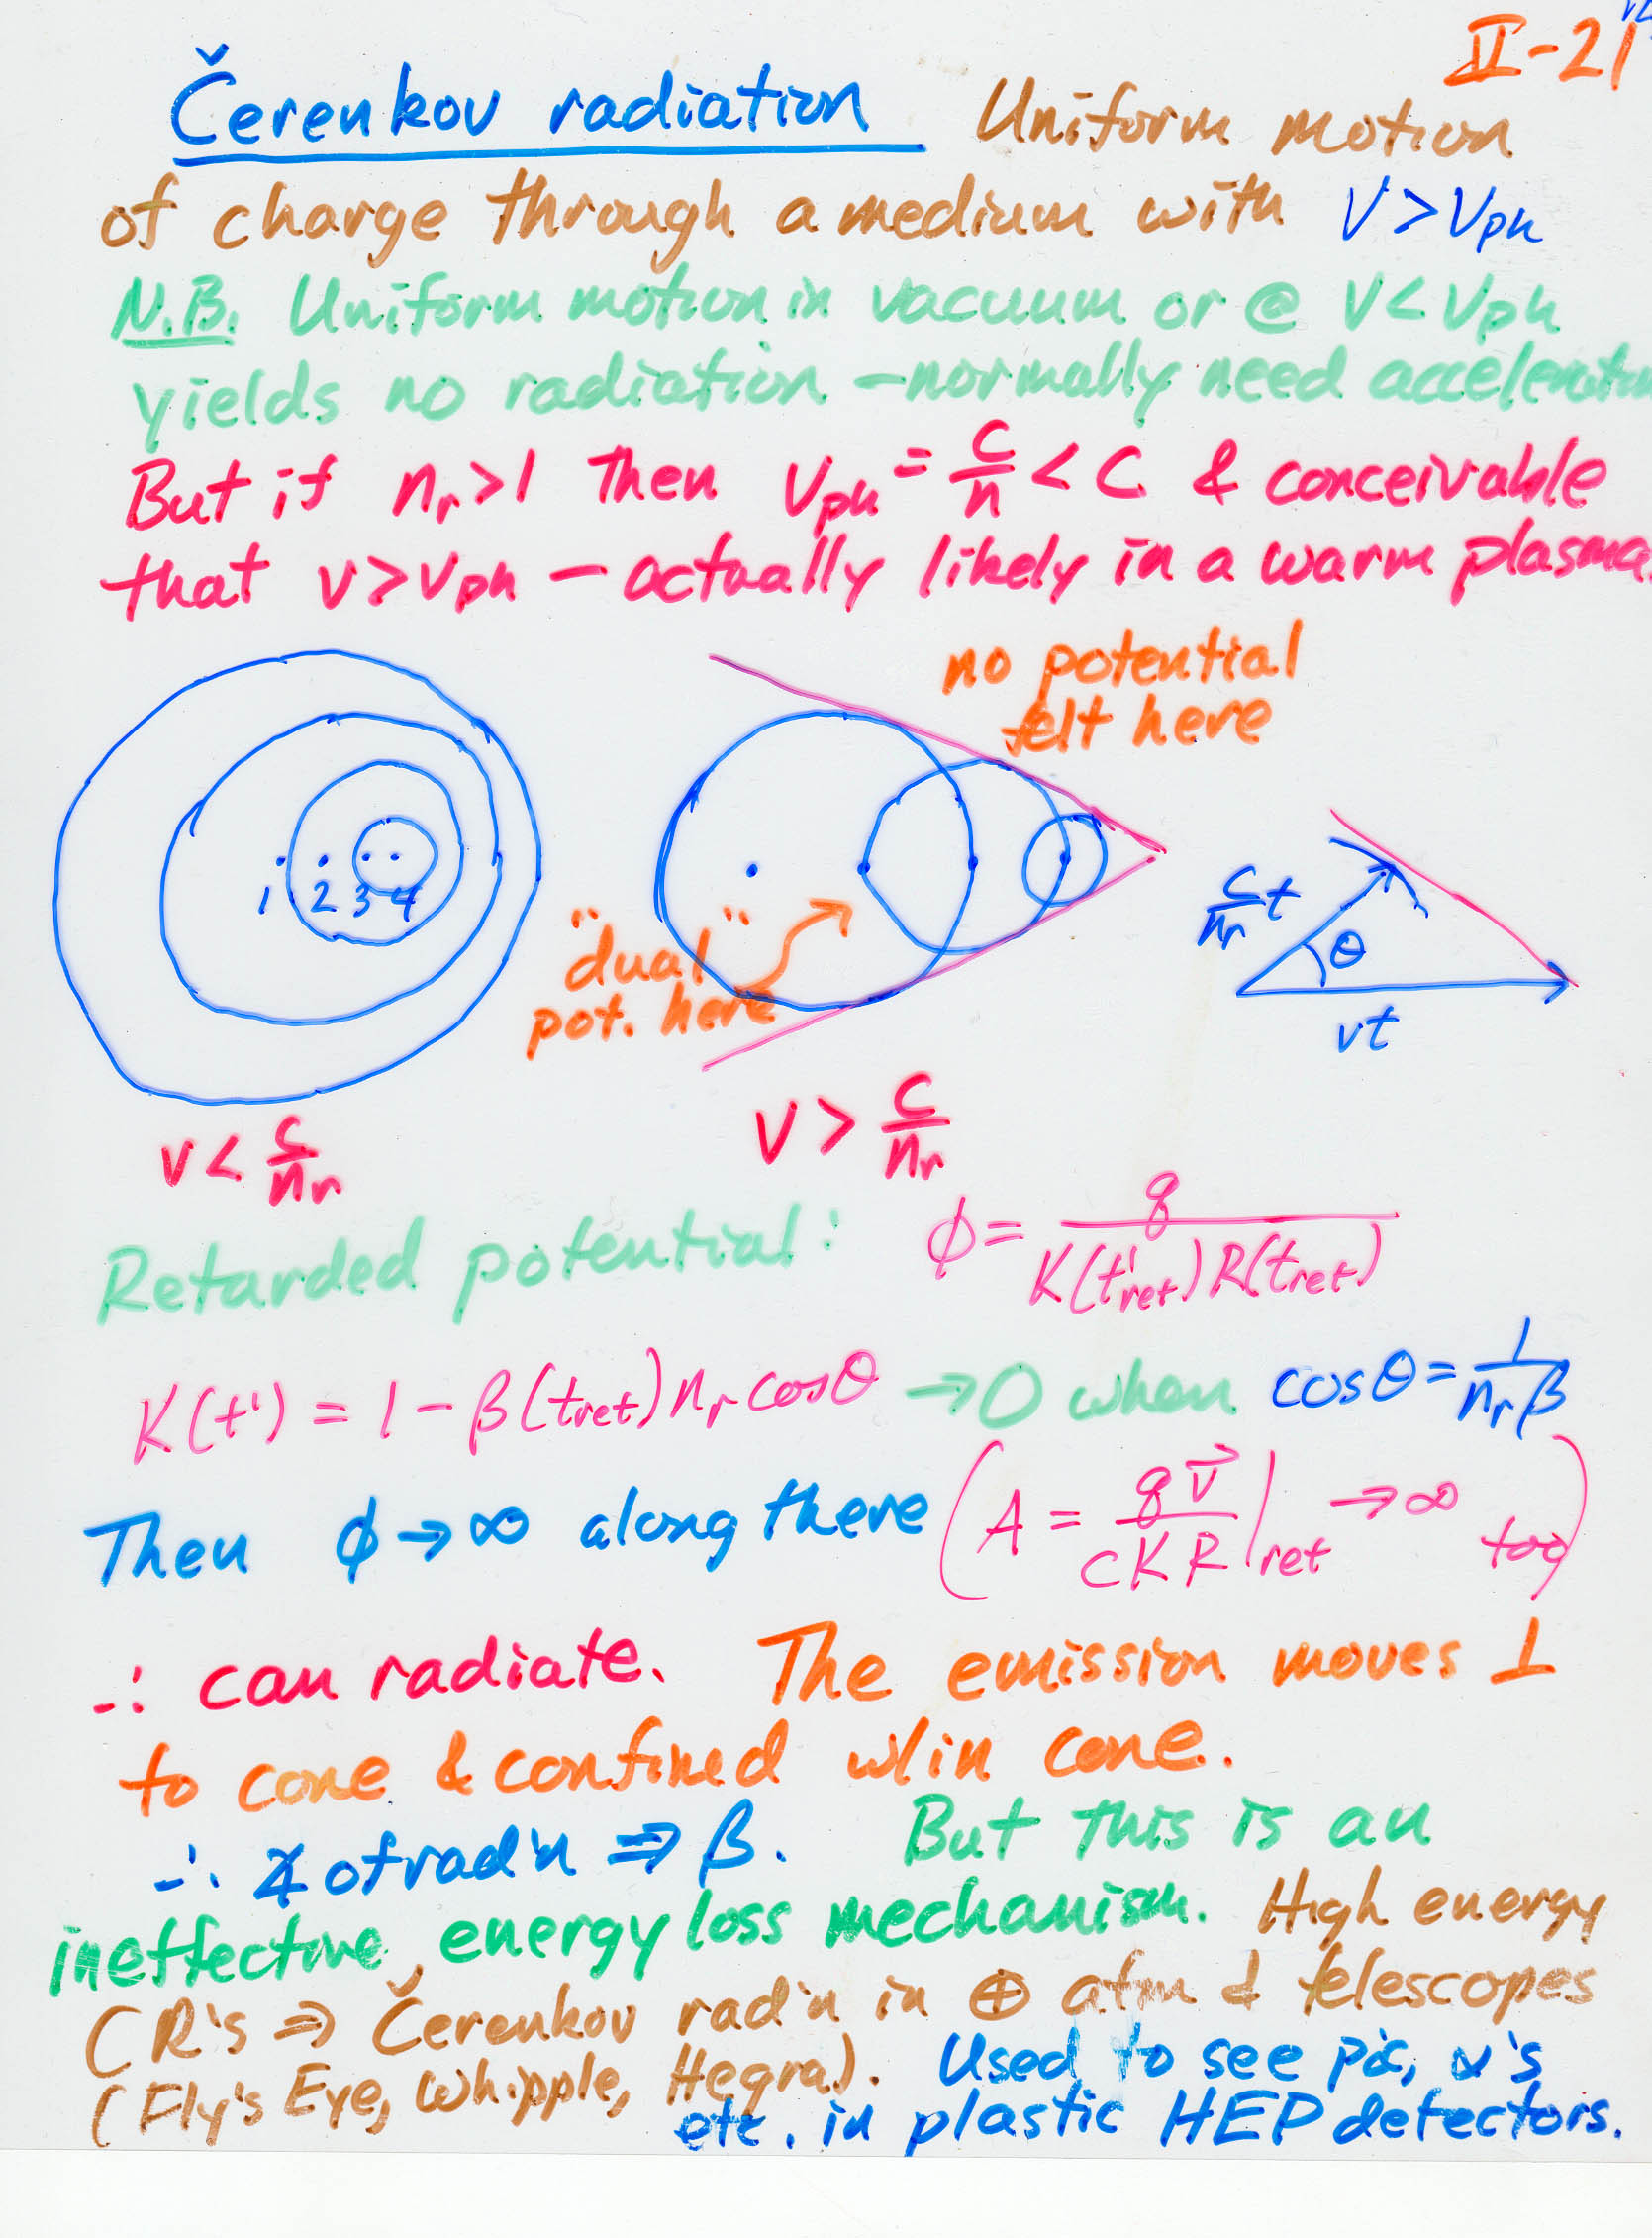 II-21
Čerenkov radiation Uniform motion
of charge through a medium with V > Vph
N.B. Uniform motion in vacuum or @ V < Vph
yields no radiation - normally need acceleration
But if nr > 1 then Vph = c/n < c & conceivable
that v > vph - actually likely in a warm plasma.
no potential
felt here
1 2 3 4
"dual"
pot. here
c/nr t
θ
vt
v < c/nr
V > c/nr
Retarded potential: ϕ = q / K(t'ret) R(tret)
K(t') = 1 - β(tret) nr cosθ → 0 when cosθ = 1/nrβ
Then ϕ → ∞ along there (A = q v⃗ / cKR |ret → ∞ too)
∴ can radiate. The emission moves ⊥
to cone & confined w/in cone.
∴ ∡ of rad'n ⇒ β. But this is an
ineffective energy loss mechanism. High energy
CR's ⇒ Čerenkov rad'n in ⊕ atm & telescopes
(Fly's Eye, Whipple, Hegra). Used to see p's, α's
etc. in plastic HEP detectors.